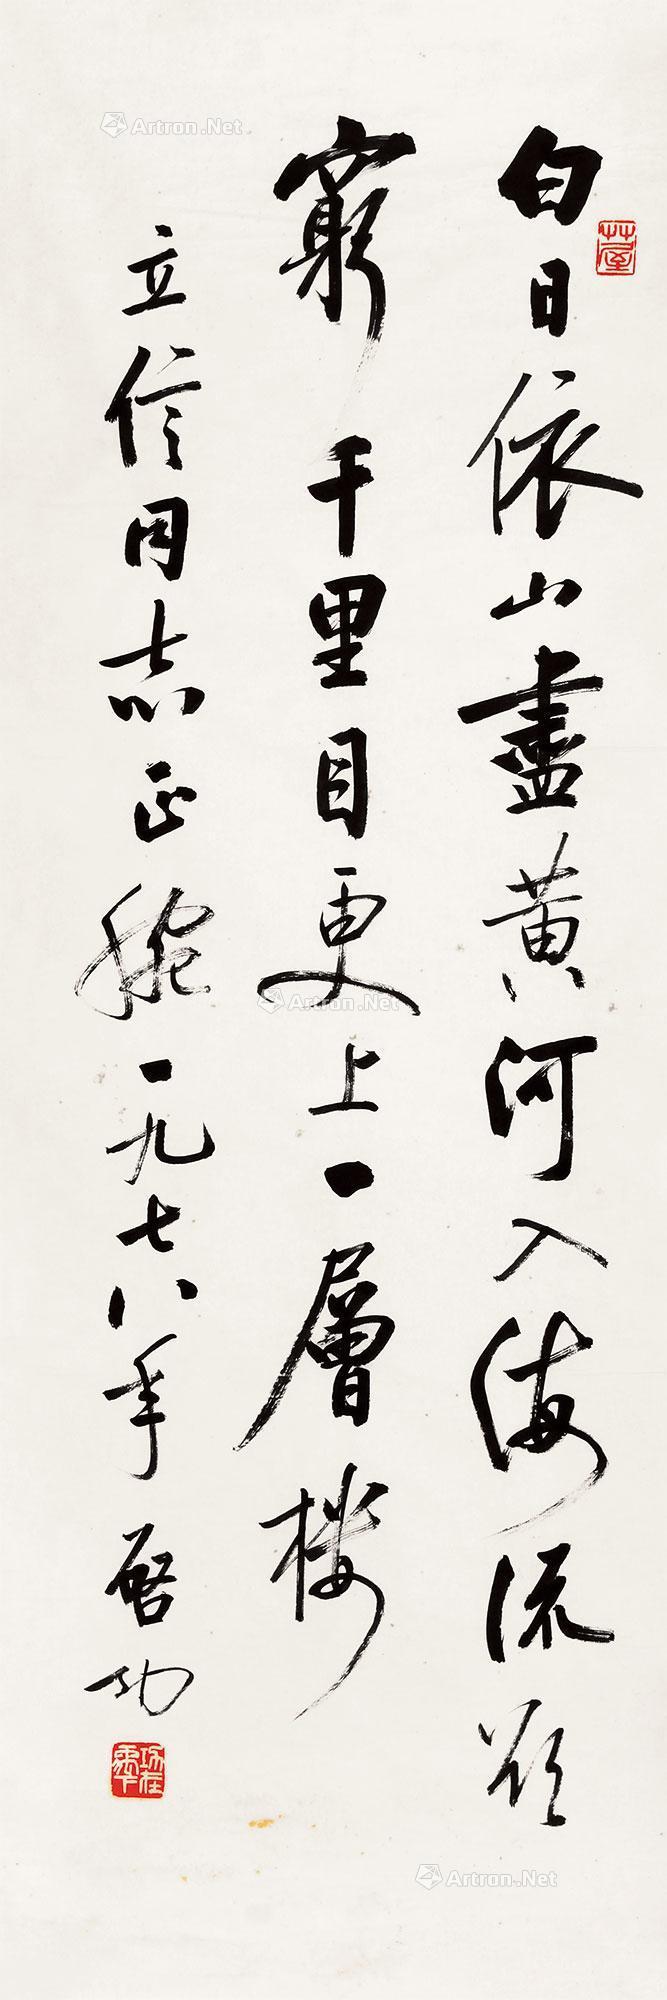 白日依山盡黄河入海流欲
窮千里目更上一層楼
立信同志正腕一九七八年 啓功
Artron.Net
Artron.Net
Artron.Net